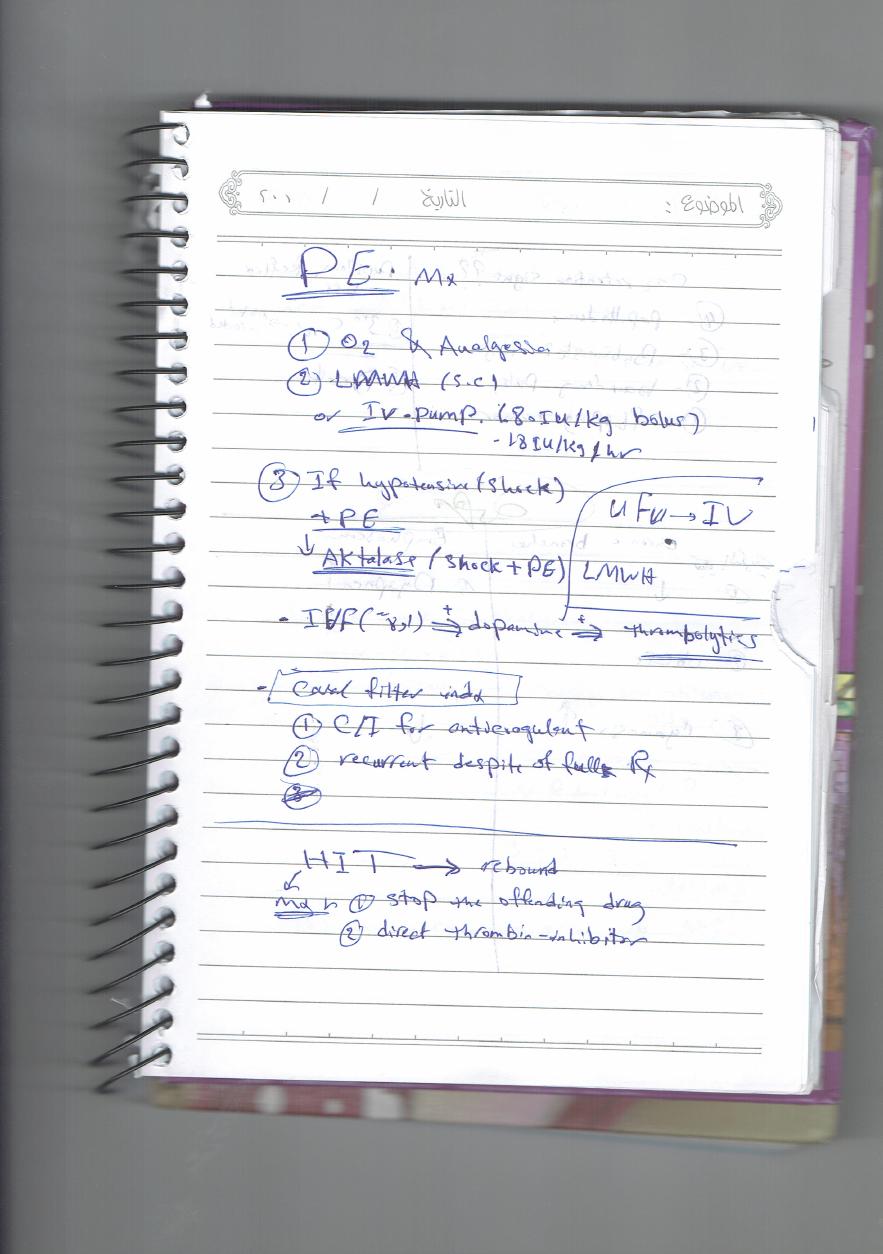 الموضوع : التاريخ / / ٢٠٠
PE. Mx
① O2 & Analgesia
② LMWH (S.C)
or IV.pump. (80 IU/kg bolus)
- 18 IU/kg/hr
③ If hypotensive (shock)
+ PE
↓ Aktalase (shock + PE)
UFH → IV
LMWH
- IVF ⇒ + dopamine ⇒ + thrombolytics
- Caval filter indx
① C/I for anticoagulent
② recurrent despite of full Rx
HIT → rebound
① stop the offending drug
② direct thrombin-inhibitor